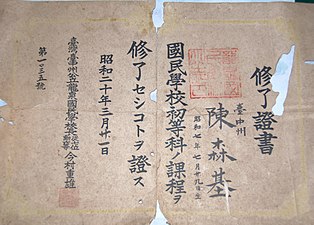 修了證書
臺中州
陳森基
昭和七年七月廿九日生
國民學校初等科ノ課程ヲ
修了セシコトヲ證ス
昭和二十年三月廿一日
今村重雄
第一三五號